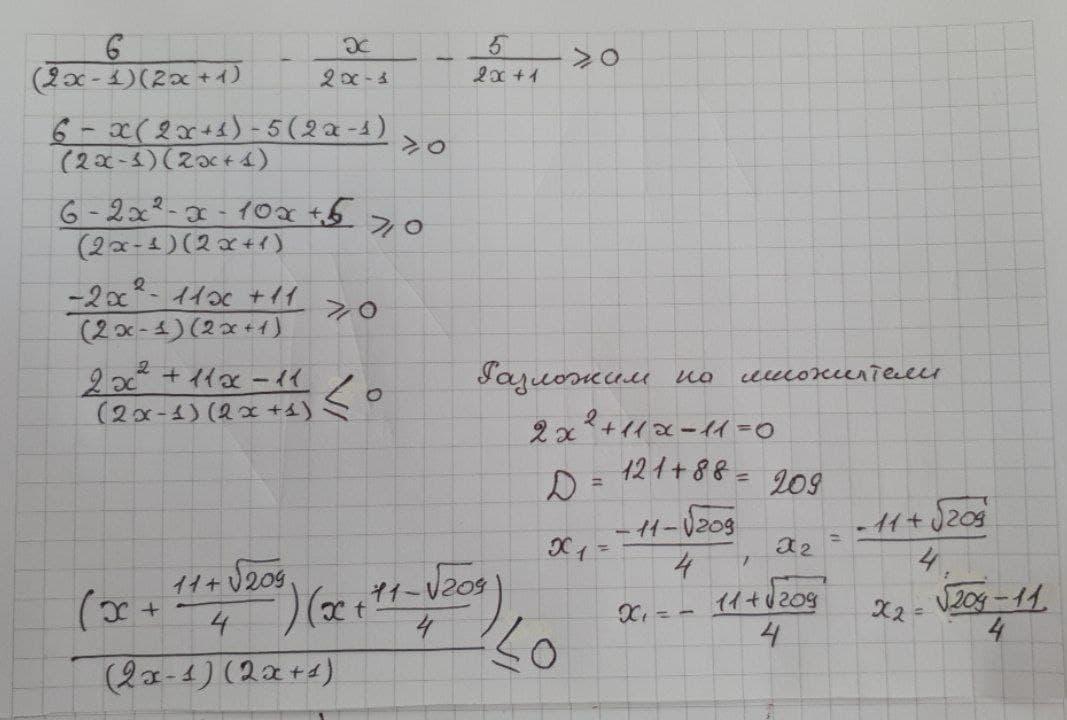 6/((2x-1)(2x+1)) - x/(2x-1) - 5/(2x+1) ⩾ 0
(6 - x(2x+1) - 5(2x-1))/((2x-1)(2x+1)) ⩾ 0
(6 - 2x² - x - 10x + 5)/((2x-1)(2x+1)) ⩾ 0
(-2x² - 11x + 11)/((2x-1)(2x+1)) ⩾ 0
(2x² + 11x - 11)/((2x-1)(2x+1)) ⩽ 0
Разложим на множители
2x² + 11x - 11 = 0
D = 121 + 88 = 209
x₁ = (-11-√209)/4, x₂ = (-11+√209)/4
x₁ = - (11+√209)/4 x₂ = (√209-11)/4
(x + (11+√209)/4)(x + (11-√209)/4)/((2x-1)(2x+1)) ⩽ 0